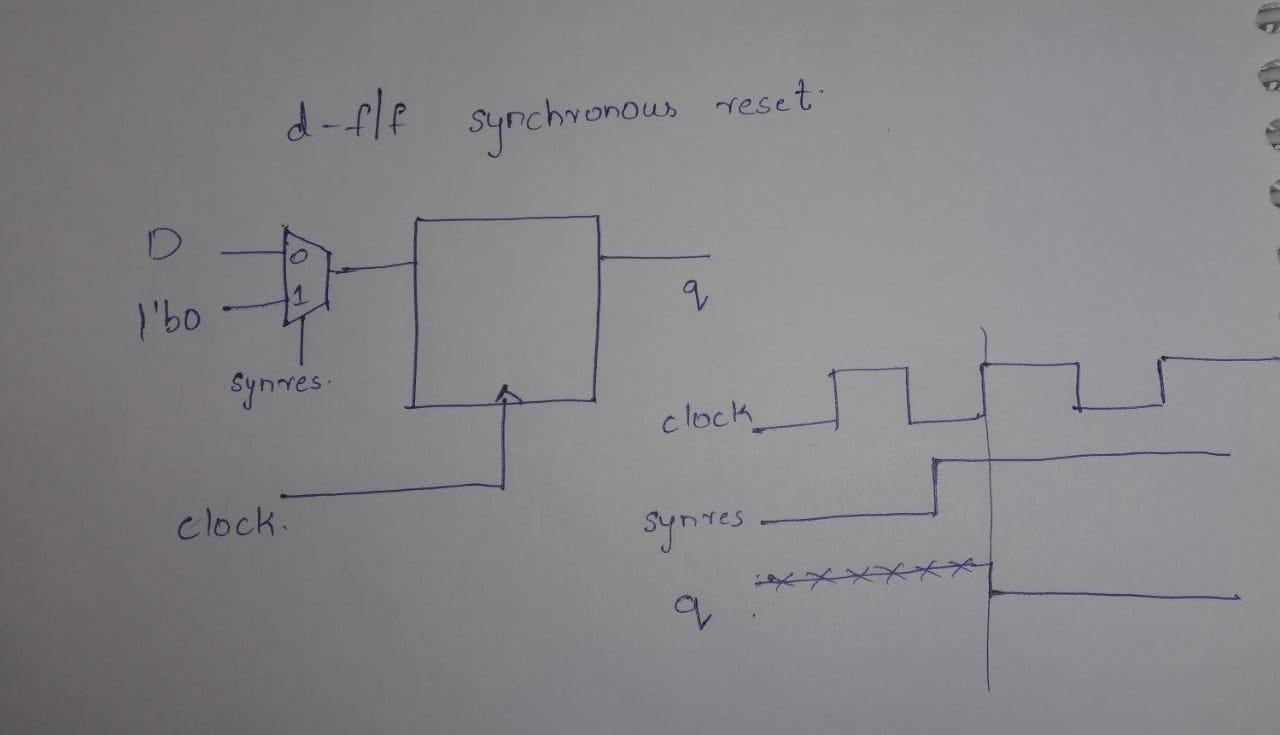 d-f/f synchronous reset.
D
0
1'b0
1
synres.
q
clock.
clock
synres
q